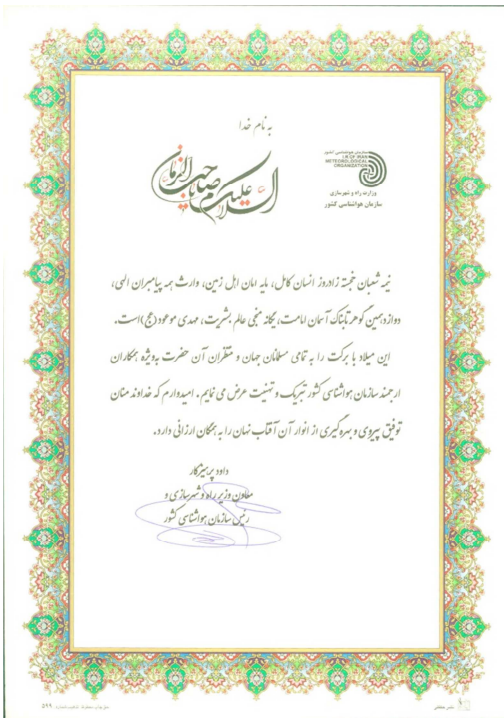 به نام خدا
السلام علیک یا صاحب الزمان
سازمان هواشناسی کشور
I.R.OF IRAN
METEOROLOGICAL
ORGANIZATION
وزارت راه و شهرسازی
سازمان هواشناسی کشور
نیمه شعبان خجسته زادروز انسان کامل، مایه امان اهل زمین، وارث همه پیامبران الهی،
دوازدهمین گوهر تابناک آسمان امامت، یگانه منجی عالم بشریت، مهدی موعود (عج) است.
این میلاد با برکت را به تمامی مسلمانان جهان و منتظران آن حضرت به‌ویژه همکاران
ارجمند سازمان هواشناسی کشور تبریک و تهنیت عرض می نمایم. امیدوارم که خداوند منان
توفیق پیروی و بهره گیری از انوار آن آفتاب نهان را به همگان ارزانی دارد.
داود پرهیزگار
معاون وزیر راه و شهرسازی و
رئیس سازمان هواشناسی کشور